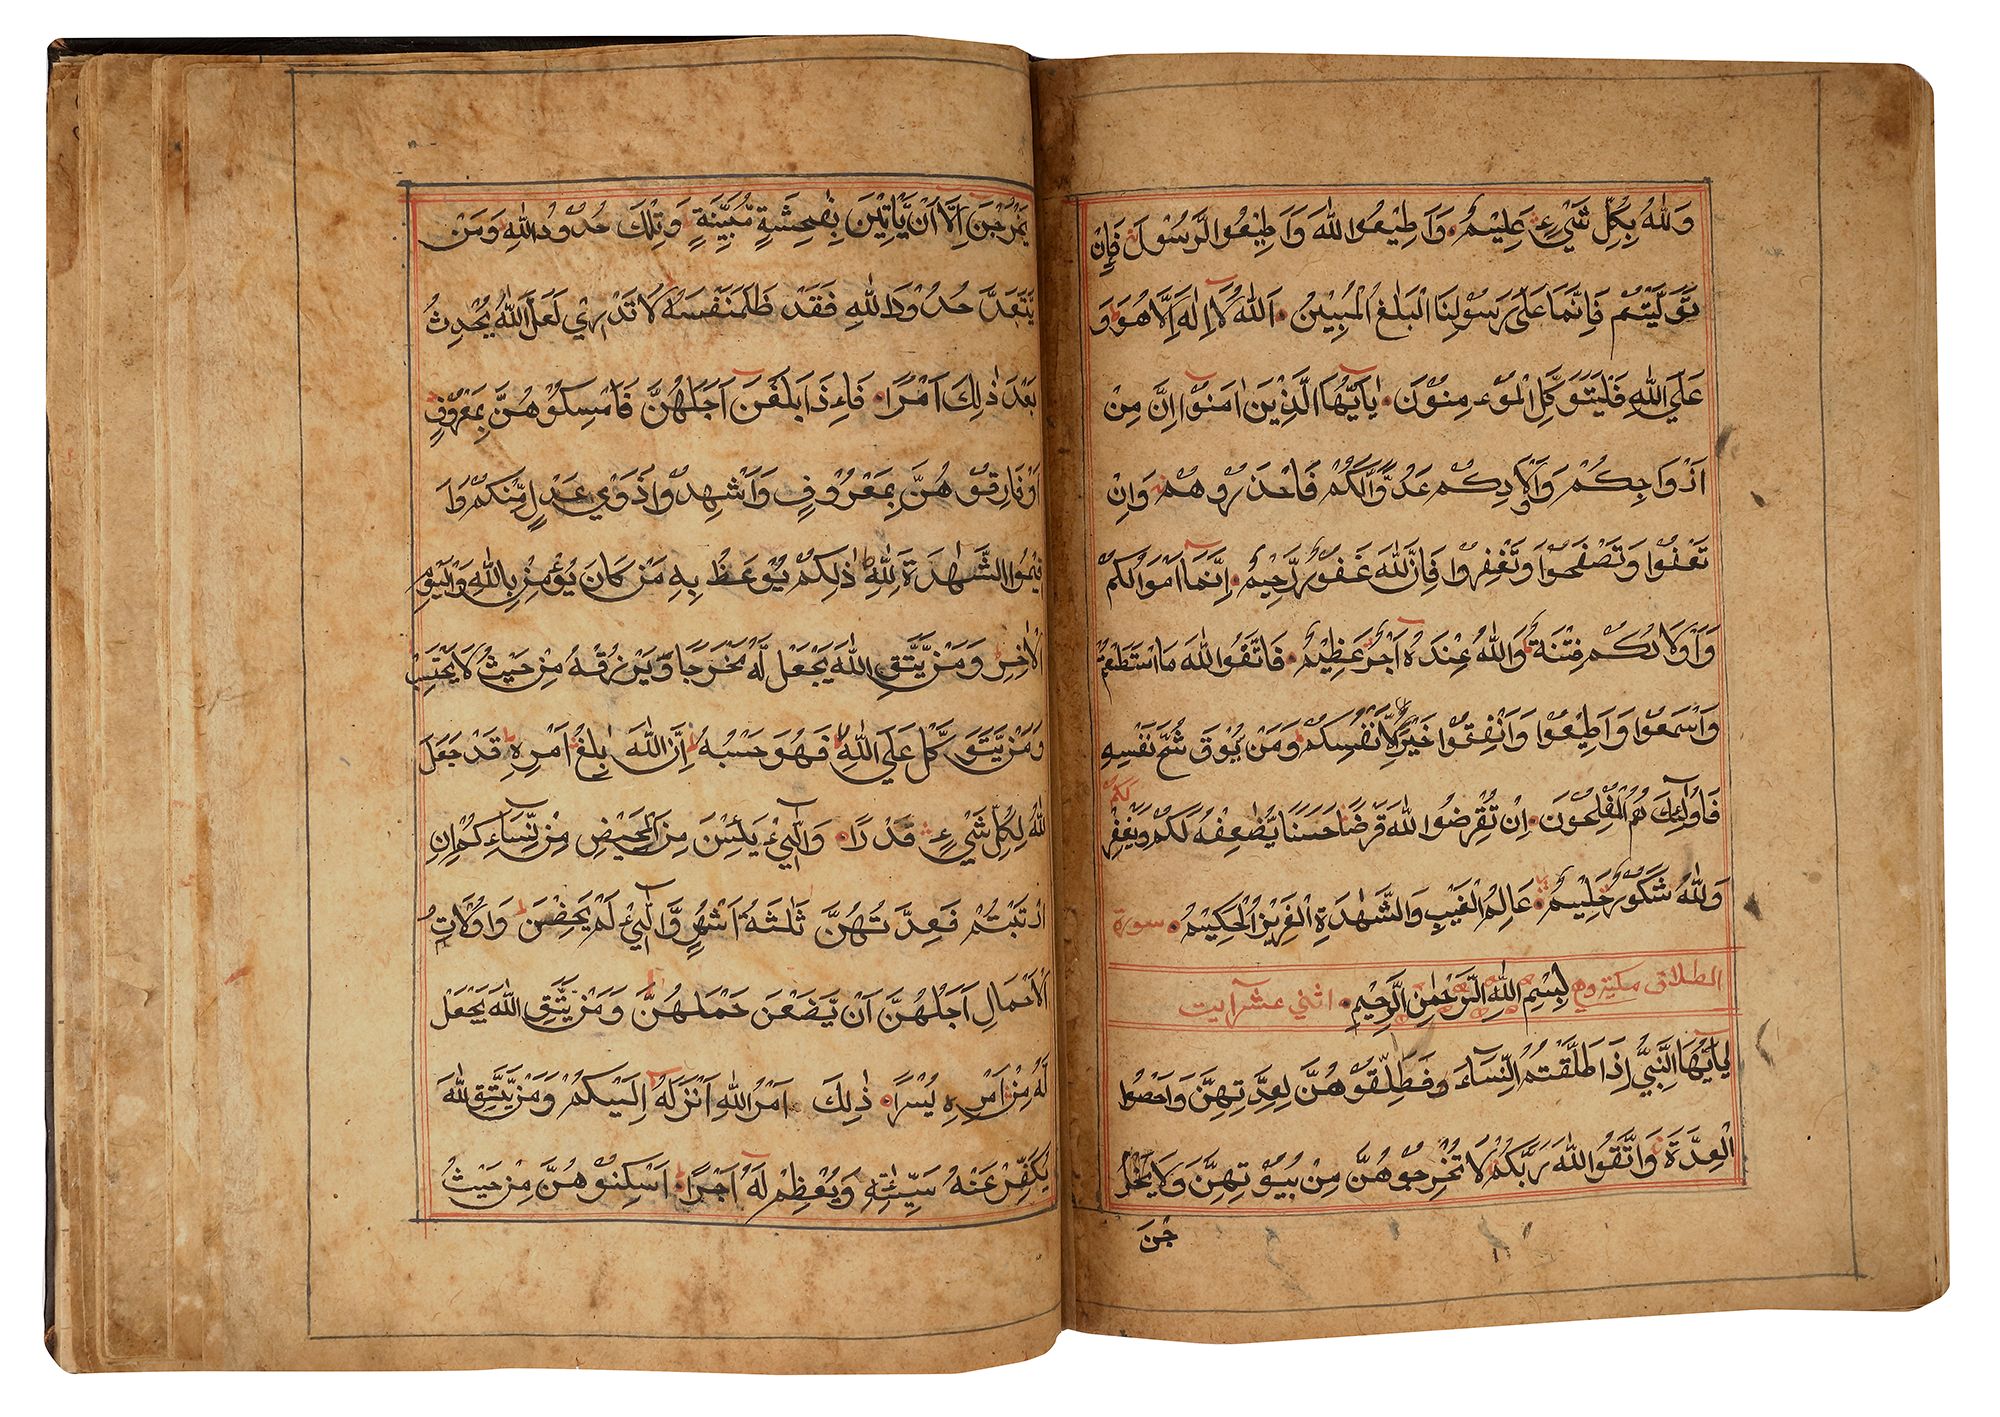 وَاللّٰهُ بِكُلِّ شَيْءٍ عَلِيْمٌ وَاَطِيْعُوا اللّٰهَ وَاَطِيْعُوا الرَّسُوْلَ فَاِنْ
تَوَلَّيْتُمْ فَاِنَّمَا عَلٰى رَسُوْلِنَا الْبَلٰغُ الْمُبِيْنُ اَللّٰهُ لَا اِلٰهَ اِلَّا هُوَ وَ
عَلَي اللّٰهِ فَلْيَتَوَكَّلِ الْمُؤْمِنُوْنَ يٰاَيُّهَا الَّذِيْنَ اٰمَنُوْا اِنَّ مِنْ
اَزْوَاجِكُمْ وَاَوْلَادِكُمْ عَدُوًّا لَّكُمْ فَاحْذَرُوْهُمْ وَاِنْ
تَعْفُوْا وَتَصْفَحُوْا وَتَغْفِرُوْا فَاِنَّ اللّٰهَ غَفُوْرٌ رَّحِيْمٌ اِنَّمَا اَمْوَالُكُمْ
وَاَوْلَادُكُمْ فِتْنَةٌ وَاللّٰهُ عِنْدَهُ اَجْرٌ عَظِيْمٌ فَاتَّقُوا اللّٰهَ مَا اسْتَطَعْتُمْ
وَاسْمَعُوْا وَاَطِيْعُوْا وَاَنْفِقُوْا خَيْرًا لِّاَنْفُسِكُمْ وَمَنْ يُّوْقَ شُحَّ نَفْسِهِ
فَاُولٰٓئِكَ هُمُ الْمُفْلِحُوْنَ اِنْ تُقْرِضُوا اللّٰهَ قَرْضًا حَسَنًا يُّضٰعِفْهُ لَكُمْ وَيَغْفِرْ لكم
وَاللّٰهُ شَكُوْرٌ حَلِيْمٌ عَالِمُ الْغَيْبِ وَالشَّهٰدَةِ الْعَزِيْزُ الْحَكِيْمُ سورة
الطلاق مكية وهي بِسْمِ اللّٰهِ الرَّحْمٰنِ الرَّحِيْمِ اثني عشر آيت
يٰاَيُّهَا النَّبِيُّ اِذَا طَلَّقْتُمُ النِّسَآءَ فَطَلِّقُوْهُنَّ لِعِدَّتِهِنَّ وَاَحْصُوا
الْعِدَّةَ وَاتَّقُوا اللّٰهَ رَبَّكُمْ لَا تُخْرِجُوْهُنَّ مِنْ بُيُوْتِهِنَّ وَلَا يَخْرُ
جْنَ
يَخْرُجْنَ اِلَّا اَنْ يَّاْتِيْنَ بِفٰحِشَةٍ مُّبَيِّنَةٍ وَتِلْكَ حُدُوْدُ اللّٰهِ وَمَنْ
يَّتَعَدَّ حُدُوْدَ اللّٰهِ فَقَدْ ظَلَمَ نَفْسَهُ لَا تَدْرِيْ لَعَلَّ اللّٰهَ يُحْدِثُ
بَعْدَ ذٰلِكَ اَمْرًا فَاِذَا بَلَغْنَ اَجَلَهُنَّ فَاَمْسِكُوْهُنَّ بِمَعْرُوْفٍ
اَوْ فَارِقُوْهُنَّ بِمَعْرُوْفٍ وَاَشْهِدُوْا ذَوَيْ عَدْلٍ مِّنْكُمْ وَاَ
قِيْمُوا الشَّهٰدَةَ لِلّٰهِ ذٰلِكُمْ يُوْعَظُ بِهِ مَنْ كَانَ يُؤْمِنُ بِاللّٰهِ وَالْيَوْمِ
الْاٰخِرِ وَمَنْ يَّتَّقِ اللّٰهَ يَجْعَلْ لَّهُ مَخْرَجًا وَّيَرْزُقْهُ مِنْ حَيْثُ لَا يَحْتَسِبُ
وَمَنْ يَّتَوَكَّلْ عَلَي اللّٰهِ فَهُوَ حَسْبُهُ اِنَّ اللّٰهَ بٰلِغُ اَمْرِهِ قَدْ جَعَلَ
اللّٰهُ لِكُلِّ شَيْءٍ قَدْرًا وَالّٰٓئِيْ يَئِسْنَ مِنَ الْمَحِيْضِ مِنْ نِّسَآءِكُمْ اِنِ
ارْتَبْتُمْ فَعِدَّتُهُنَّ ثَلٰثَةُ اَشْهُرٍ وَّالّٰٓئِيْ لَمْ يَحِضْنَ وَاُولَاتُ
الْاَحْمَالِ اَجَلُهُنَّ اَنْ يَّضَعْنَ حَمْلَهُنَّ وَمَنْ يَّتَّقِ اللّٰهَ يَجْعَلْ
لَّهُ مِنْ اَمْرِهِ يُسْرًا ذٰلِكَ اَمْرُ اللّٰهِ اَنْزَلَهُ اِلَيْكُمْ وَمَنْ يَّتَّقِ اللّٰهَ
يُكَفِّرْ عَنْهُ سَيِّئٰتِهِ وَيُعْظِمْ لَهُ اَجْرًا اَسْكِنُوْهُنَّ مِنْ حَيْثُ